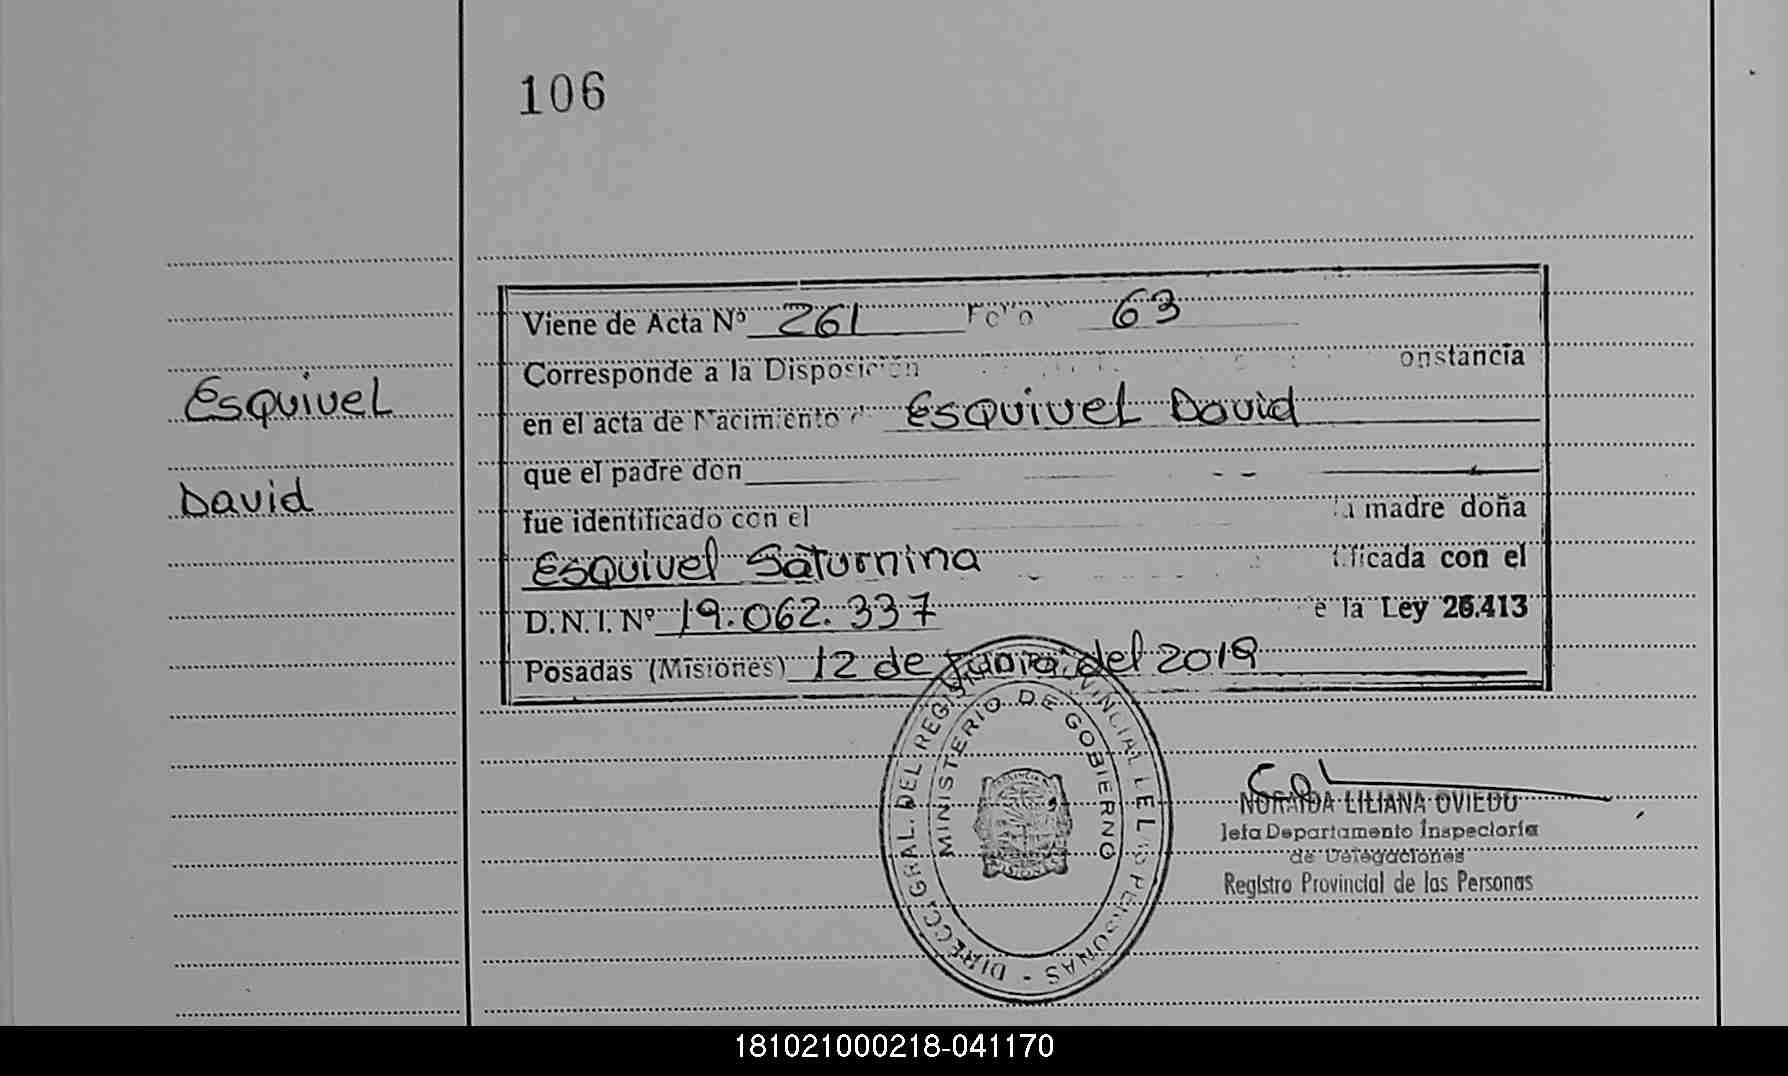 106
Esquivel
David
Viene de Acta Nº 261 Folio 63
Corresponde a la Disposición onstancia
en el acta de Nacimiento d Esquivel David
que el padre don
fue identificado con el la madre doña
Esquivel Saturnina ificada con el
D.N.I. Nº 19.062.337 e la Ley 26.413
Posadas (Misiones) 12 de Junio del 2019
DIRECC. GRAL. DEL REGISTRO PROVINCIAL DE LAS PERSONAS -
MINISTERIO DE GOBIERNO
NORAIDA LILIANA OVIEDO
Jefa Departamento Inspectoría
de Delegaciones
Registro Provincial de las Personas
181021000218-041170